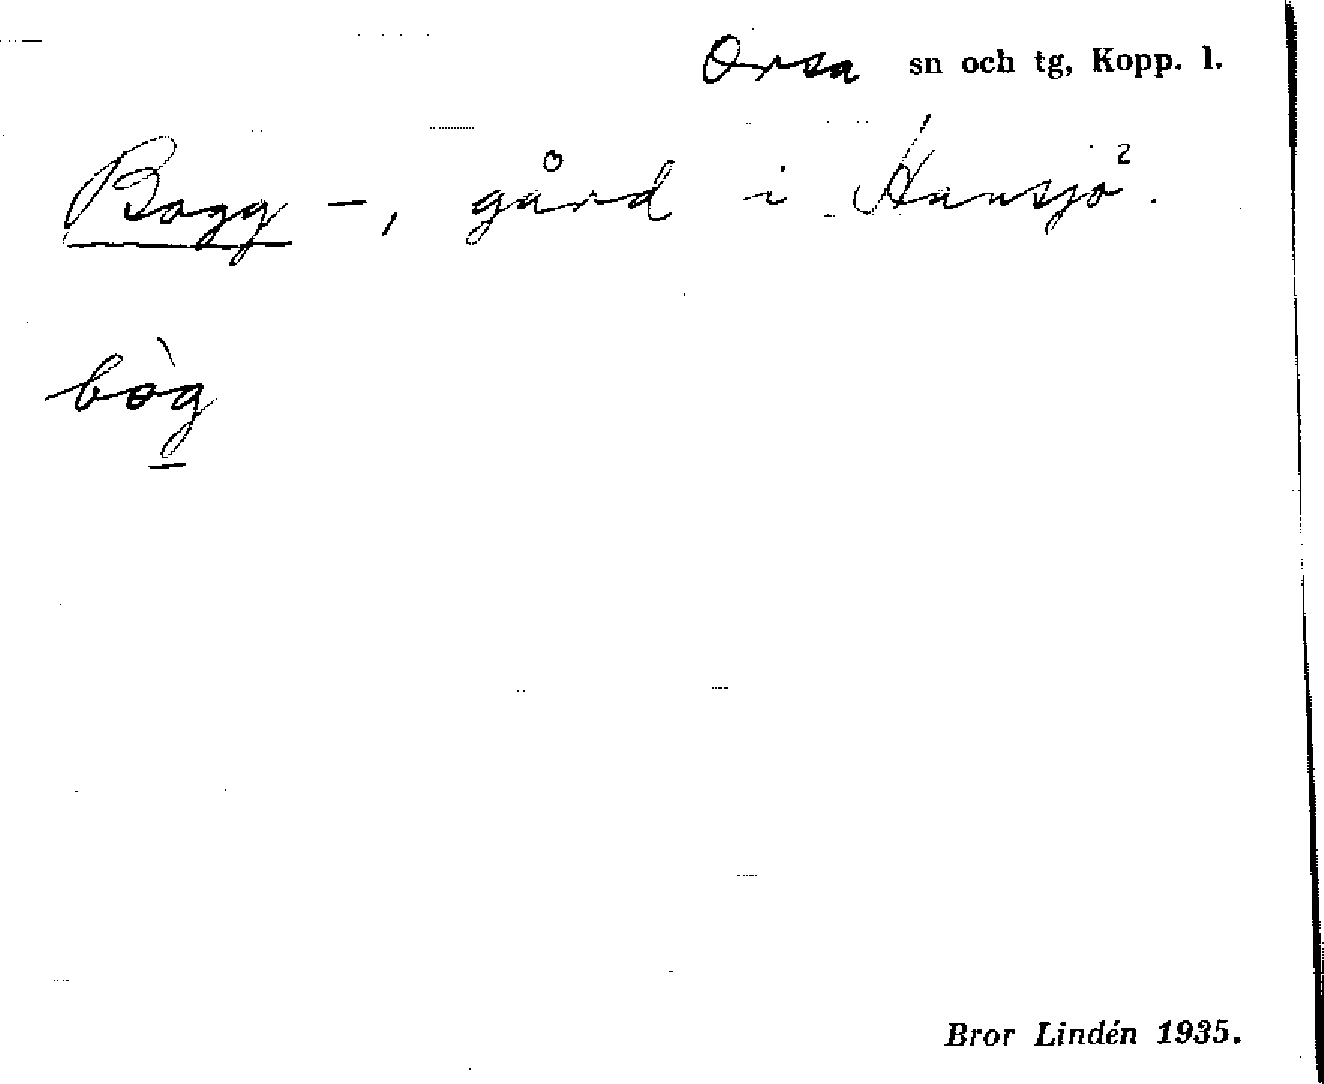 Orsa sn och tg, Kopp. l.
Bogg –, gård i Hansjö.
bòg
Bror Lindén 1935.